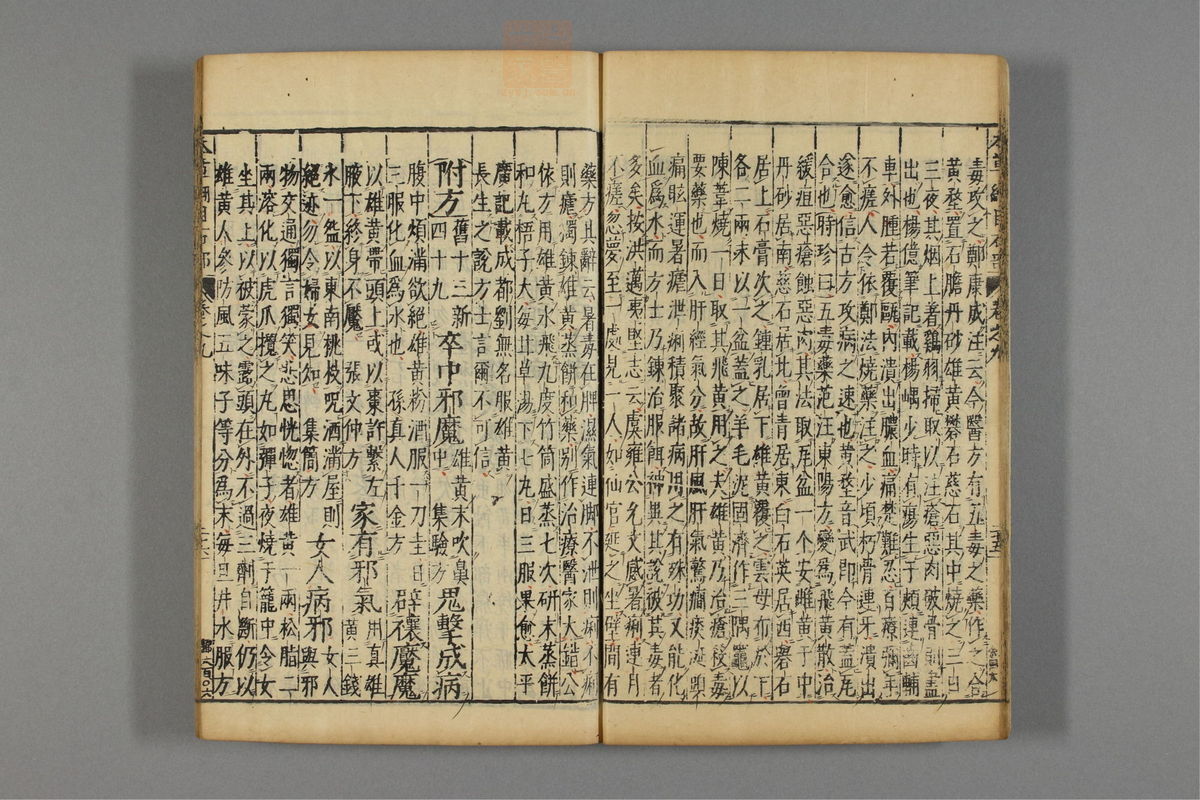 毒攻之鄭康成注云今醫方有五毒之藥作之合
黃堥置石膽丹砂雄黃礬石慈石其中燒之三日
三夜其烟上着雞羽掃取以注瘡惡肉破骨則盡
出也楊億筆記載楊嵎少時有瘍生于頰連齒輔
車外腫若覆甌內潰出膿血痛楚難忍百療彌年
不瘥人令依鄭法燒藥注之少頃朽骨連牙潰出
遂愈信古方攻病之速也黃堥音武即今有蓋瓦
合也時珍曰五毒藥范汪東陽方變為飛黃散治
緩疽惡瘡蝕惡肉其法取瓦盆一个安雌黃于中
丹砂居南慈石居北曾青居東白石英居西礜石
居上石膏次之鍾乳居下雄黃覆之雲母布於下
各二兩末以一盆蓋之羊毛泥固濟作三隅竈以
陳葦燒一日取其飛黃用之夫雄黃乃治瘡殺毒
要藥也而入肝經氣分故肝風肝氣驚癇痰涎頭
痛眩運暑瘧泄痢積聚諸病用之有殊功又能化
血爲水而方士乃鍊治服餌神異其說被其毒者
多矣按洪邁夷堅志云虞雍公允文感暑痢連月
不瘥忽夢至一處見一人如仙官延之坐壁間有
藥方其辭云暑毒在脾濕氣連脚不泄則痢不痢
則瘧獨鍊雄黃蒸餅和藥别作治療醫家大錯公
依方用雄黃水飛九度竹筒盛蒸七次研末蒸餅
和丸梧子大每甘草湯下七丸日三服果愈太平
廣記載成都劉無名服雄黃
長生之說方士言爾不可信
附方 舊十三新四十九 卒中邪魔 雄黃末吹鼻中 集驗方 鬼擊成病
腹中煩滿欲絕雄黃粉酒服一刀圭日
三服化血爲水也 孫真人千金方 辟禳魔魘
以雄黃帶頭上或以棗許繫左
腋下終身不魘 張文仲方 家有邪氣 用真雄黃三錢
水一盌以東南桃枝呪洒滿屋則
絕迹勿令婦女見知 集簡方 女人病邪 女人與邪
物交通獨言獨笑悲思恍惚者雄黃一兩松脂二
兩溶化以虎爪攪之丸如彈子夜燒于籠中令女
坐其上以被蒙之露頭在外不過三劑自斷仍以
雄黃人參防風五味子等分爲末每旦井水服方